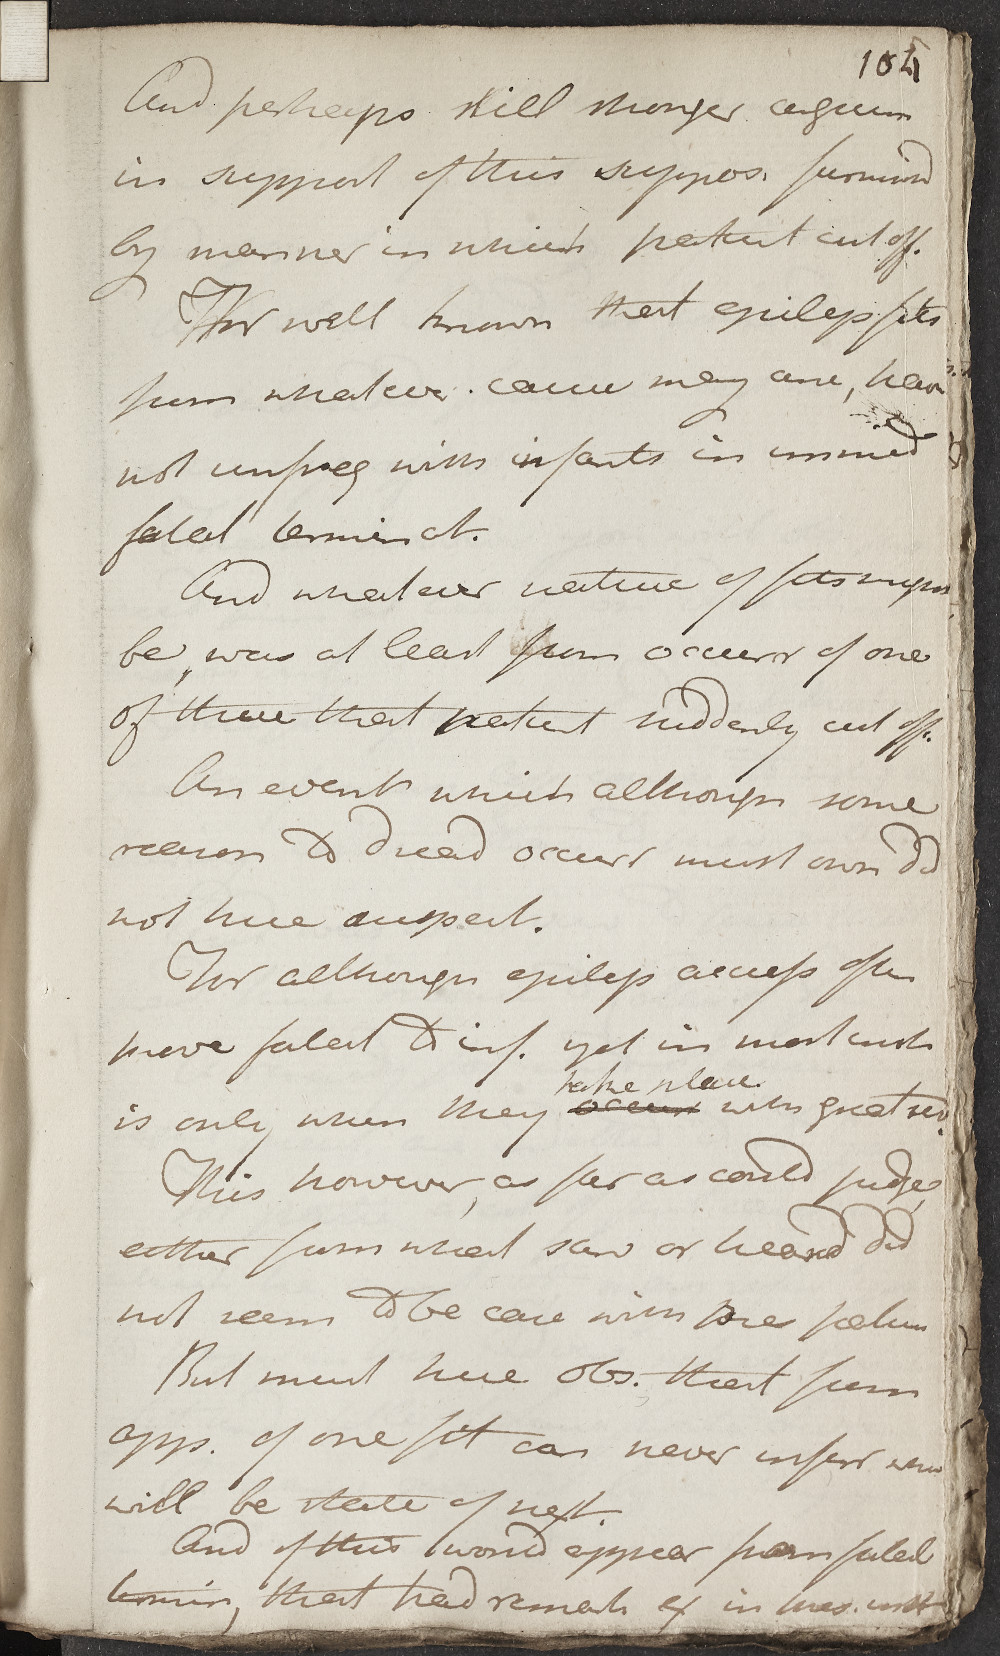 105
And perhaps still stronger argum
in support of this suppos. furnishd
by manner in which patient cut off.
For well known that epilep fits
from whatever cause may arise, have
not unfreq with infants an immed
fatal terminat.
And whatever nature of fits might
be, was at least from occurr of one
of these that patient suddenly cut off.
An event which although some
reason to dread occurr must own did
not here suspect.
For although epilep access often
prove fatal to inf. yet in most inst
is only when they take place with great
This however, as far as could judge,
either from what saw or heard did
not seem to be case with pres patien
But must here obs. that from
app. of one fit can never inferr what
will be state of next.
And of this would appear from fatal
termin, that had remark ex in pres. inst